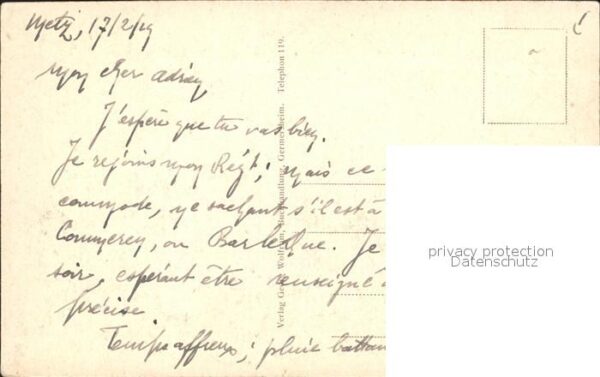 Metz, 17/2/19
Mon cher Adrien
J'espère que tu vas bien.
Je rejoins mon Régt; mais ce
commode, ne sachant s'il est à
Commercy, ou Bar le Duc. Je
soir, espérant être renseigné
précise
Temps affreux; pluie battan
Verlag Georg Wolfrum, Buchhandlung, Germersheim. Telephon 119.
privacy protection
Datenschutz